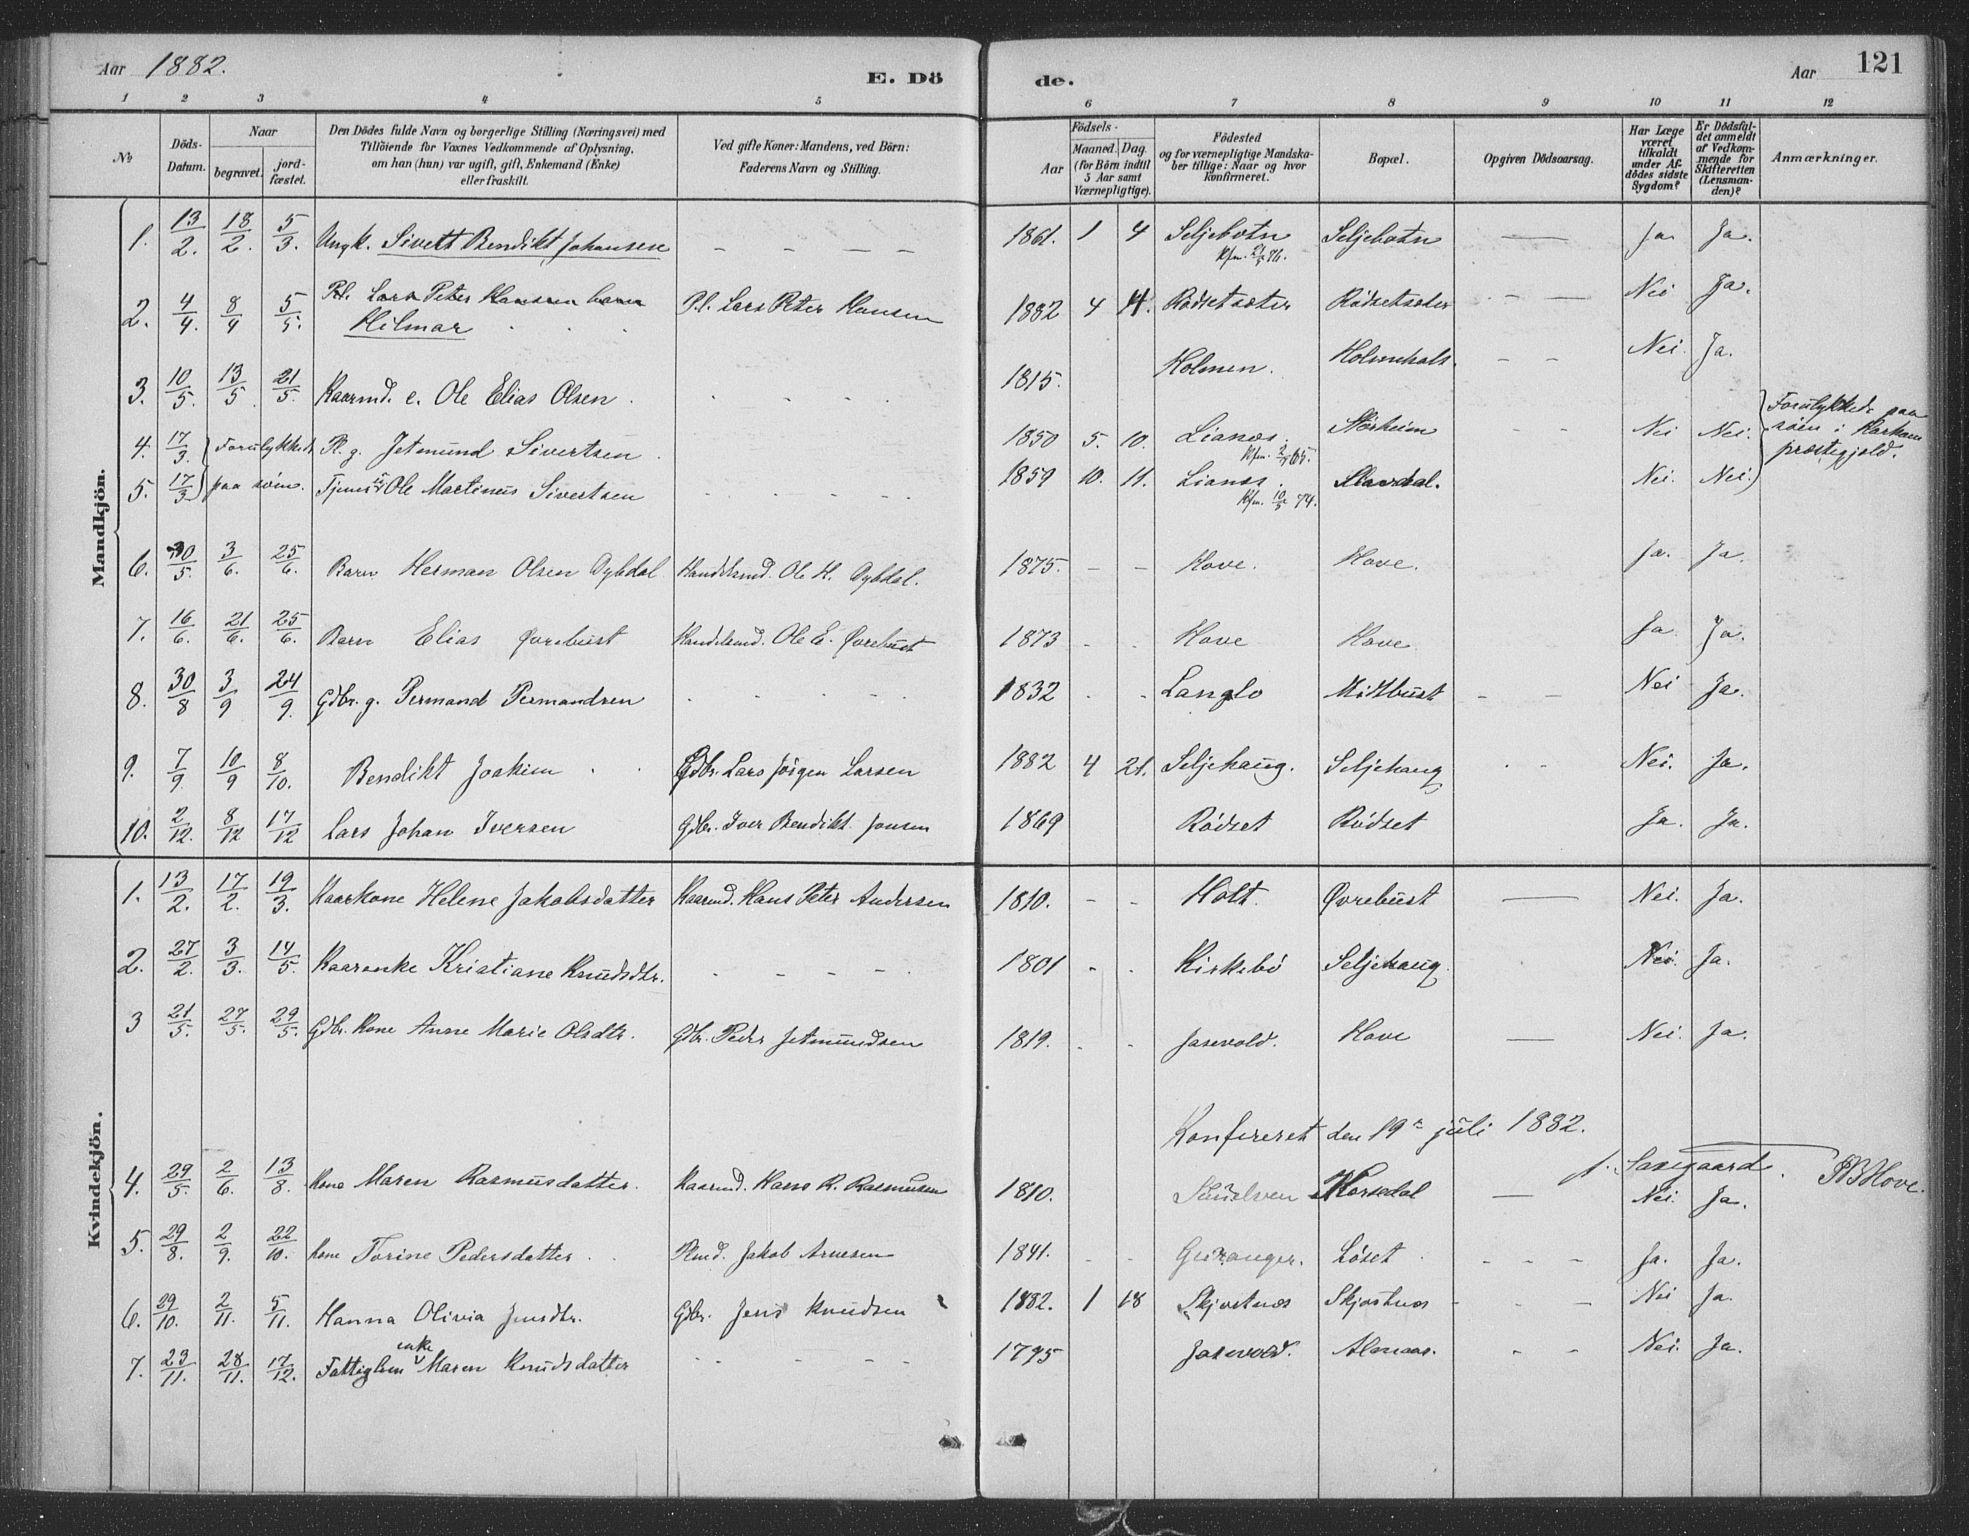 Aar 1882. E. Dö de. Aar 121
1 2 3 4 5 6 7 8 9 10 11 12
No
Döds-Datum.
Naar
begravet.
jord-fæstet.
Den Dödes fulde Navn og borgerlige Stilling (Næringsvei) med
Tilföiende for Voxnes Vedkommende af Oplysning,
om han (hun) var ugift, gift, Enkemand (Enke)
eller fraskilt.
Ved gifte Koner: Mandens, ved Börn:
Faderens Navn og Stilling.
Födsels-
Aar
Maaned. Dag.
(for Börn indtil
5 Aar samt
Værnepligtige).
Födested
og for værnepligtige Mandska-
ber tillige: Naar og hvor
konfirmeret.
Bopæl.
Opgiven Dödsaarsag.
Har Læge
været
tilkaldt
under Af-
dödes sidste
Sygdom?
Er Dödsfal-
det anmeldt
af Vedkom-
mende for
Skifteretten
(Lensman-
den)?
Anmærkninger.
Mandkjön.
1. 13/2. 18/2. 5/3. Ungk. Sivert Bendikt Johansen – – – – 1861. 1 4 Seljebotn Seljebotn — Ja. Ja.
Kfm. 76.
2. 4/4. 8/4 5/5. Pl. Lars Peter Hansens barn Pl. Lars Peter Hansen 1882 4 Rödsetsæter Rödsetsæter – – Nei Ja.
Hilmar
3. 10/5. 13/5 21/5. Kaarmd. e. Ole Elias Olsen. 1815. Holmen. – – Nei. Ja.
4. 17/3. Forulykkede Pl. g. Jetmund Sivertsen. 1850 5. 10. Lianes. Störheim Nei Nei. Forulykkede paa
söen i Harham
præstegjeld.
Kfm. 65.
5. 17/3 paa söen. Ole Martinus Sivertsen 1859 10. 11. Lianes. Nei. Nei.
Kfm. 10/5 74.
6. 30/5. 3/6. 25/6. Barn Herman Olsen Dybdal Handelsmd. Ole H. Dybdal. 1875. – – Hove. Hove. Ja. Ja.
7. 16/6. 21/6. 25/6. Barn Elias Övrebust Handelsmd. Ole E. Övrebust 1873 Hove Hove Ja Ja.
8. 30/8 3/9 24/9. Gdbr. g. Permand Permandsen 1832 Langlo Midtbust – – Nei Ja.
9. 7/9. 10/9 8/10. Bendikt Joakim Gdbr. Lars Jörgen Larsen 1882 4 21. Seljehaug. Seljehaug Nei. Ja.
10. 2/12. 8/12 17/12 Lars Johan Iversen Gdbr. Iver Bendikt Jonsen 1869 Rödset Rödset Ja. Ja.
Kvindekjön.
1. 13/2. 17/2. 19/3. Kaarkone Helene Jakobsdatter Kaarmd. Hans Peter Andersen 1810. – – Holt. Övrebust — Nei. Ja.
2. 27/2. 3/3. 14/5. Kaarenke Kristiane Knudsdtr. – – – – 1801 Kirkebö Seljehaug. Nei. Ja.
3 21/5. 27/5. 29/5. Gdbr. Kone Anne Marie Olsdtr. Gdbr. Peder Jetmundsen 1819. Jasevold. Hove — Nei. Ja.
Konfereret den 19de juli 1882.
f. Saxegaard. PBHove.
4. 29/5. 2/6. 13/8. Kone Maren Rasmusdatter. Kaarmd. Hans R. Rasmusen 1810. Korsdal — Nei. Ja.
5. 29/8. 2/9. 22/10. Kone Torine Pedersdatter. Plmd. Jakob Arnesen 1841. Geiranger. Löset – – – Ja. Ja.
6. 29/10. 2/11. 5/11. Hanna Olivia Jensdtr. Gdbr. Jens Knudsen 1882. 1 18 Skjortnes Skjortnes Nei Ja.
7. 23/11. 28/11. 17/12. Fattiglem enke Maren Knudsdatter 1795 Jasevold. Almaas. – – Nei. Ja.